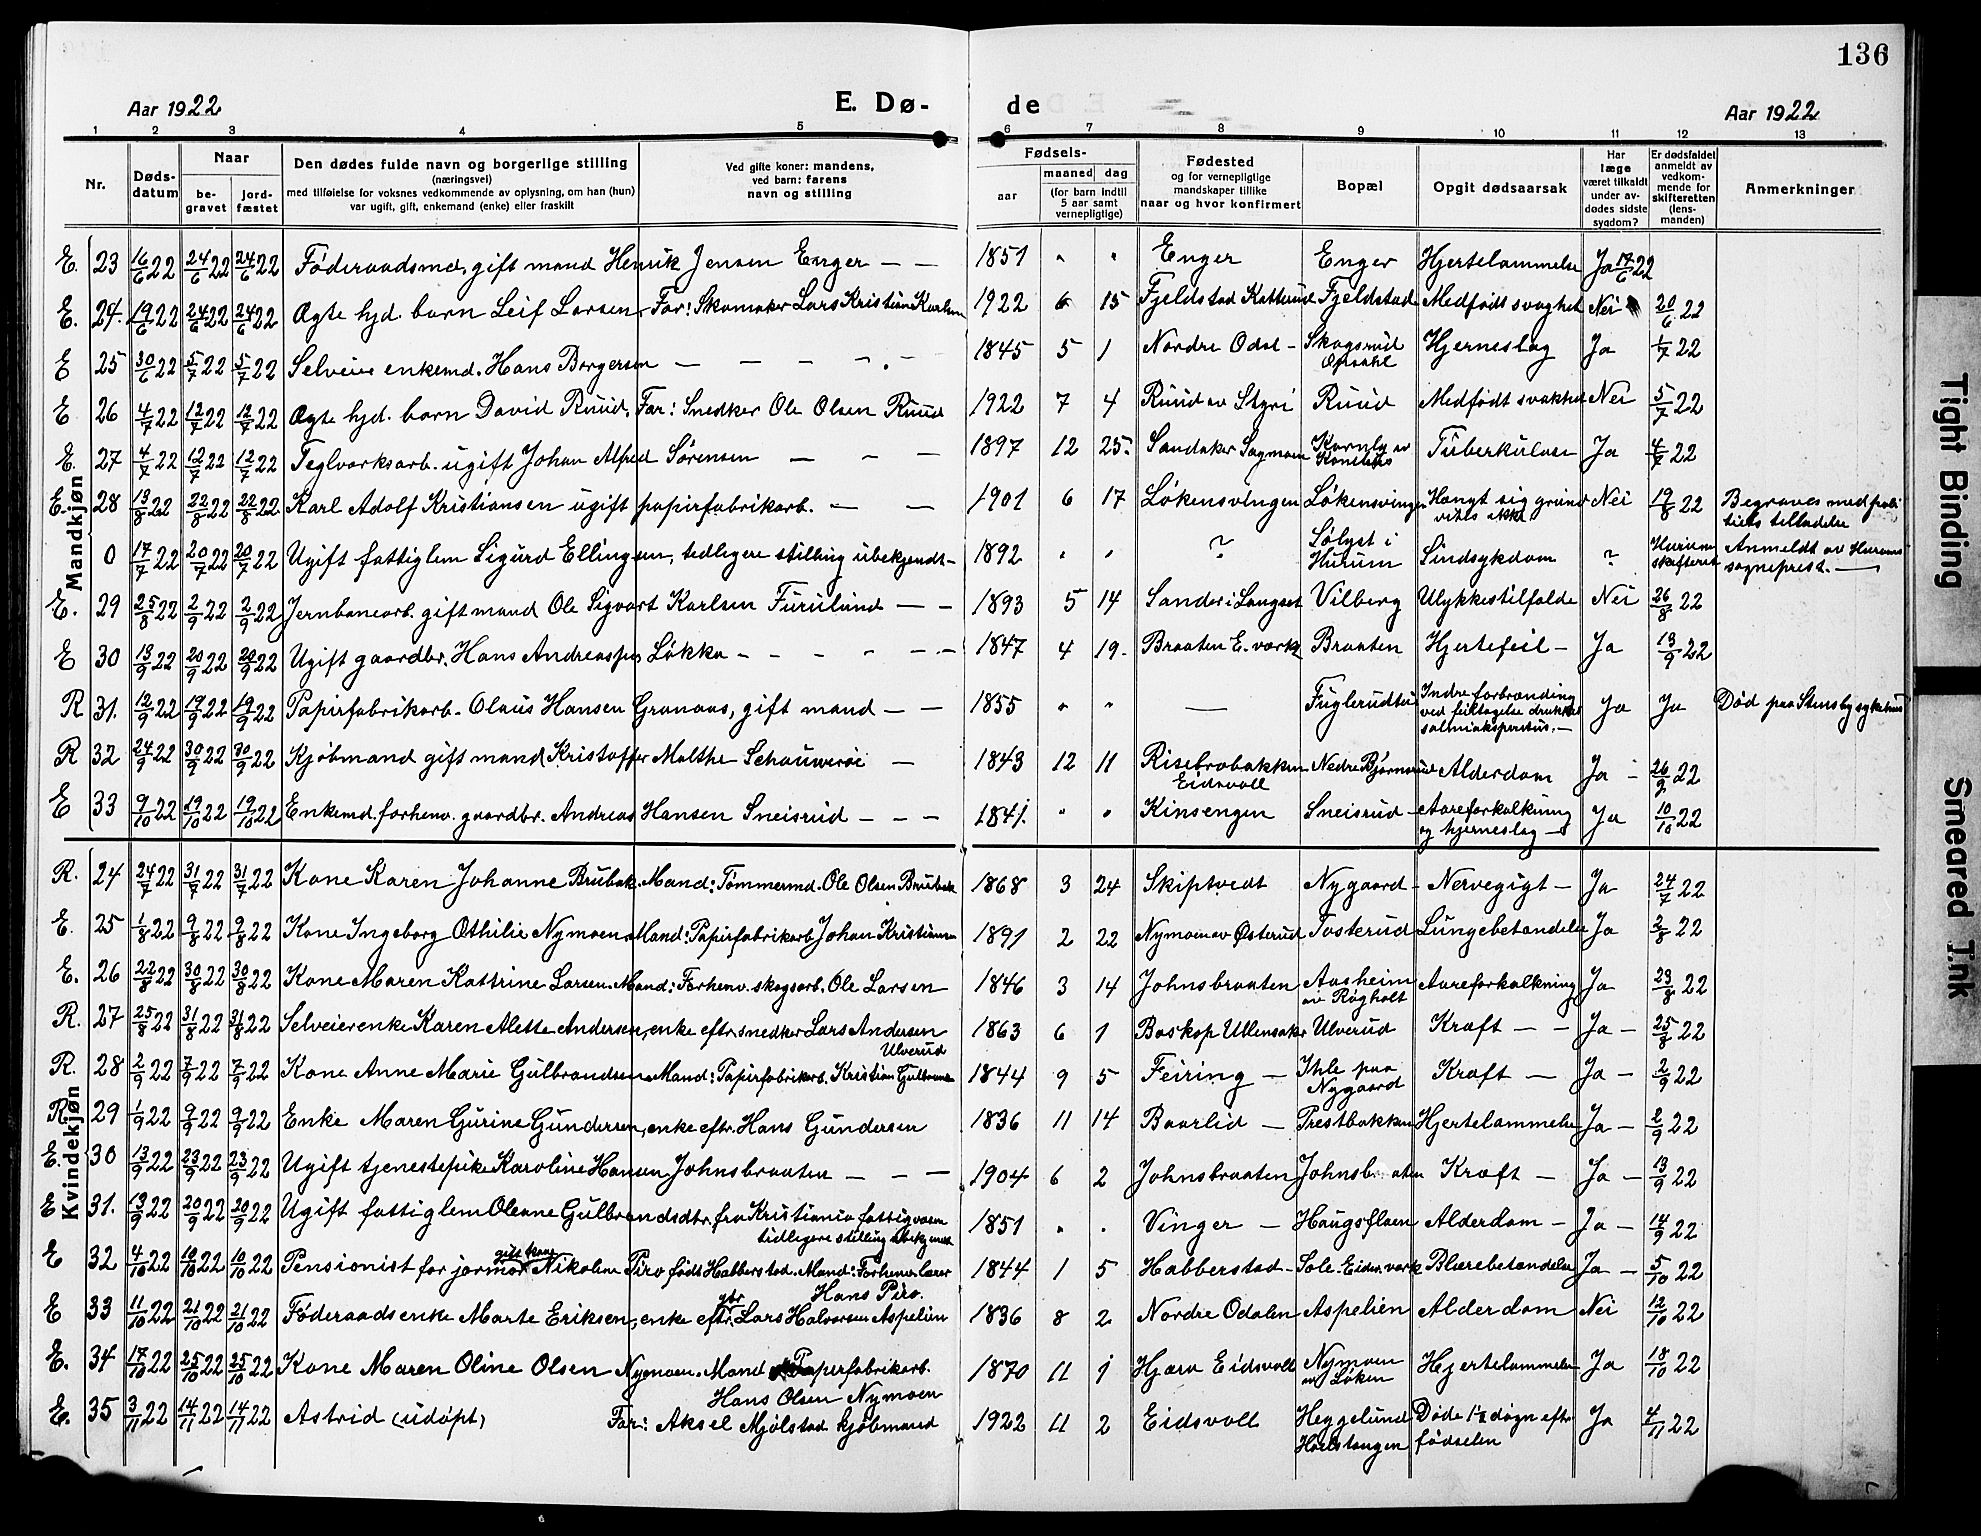 136
Aar 1922 E. Dø- de Aar 1922
1 2 3 4 5 6 7 8 9 10 11 12 13
Nr. Dødsdatum Naar begravet jordfæstet
Den dødes fulde navn og borgerlige stilling
(næringsvei)
med tilføielse for voksnes vedkommende av oplysning, om han (hun)
var ugift, gift, enkemand (enke) eller fraskilt
Ved gifte koner: mandens,
ved barn: farens
navn og stilling
Fødsels- aar maaned dag
(for barn indtil 5 aar samt vernepligtige)
Fødested
og for vernepligtige
mandskaper tillike
naar og hvor konfirmert
Bopæl
Opgit dødsaarsak
Har læge været tilkaldt under avdødes sidste sygdom?
Er dødsfaldet anmeldt av vedkommende for skifteretten (lensmanden)
Anmerkninger
Mandkjøn
E. 23 16/6 22 24/6 22 24/6 22 Føderaadsmd, gift mand Henrik Jensen Enger — — 1851 " " Enger Enger Hjertelammelse Ja 17/6 22
E. 24. 19/6 22 24/6 22 24/6 22 Ægte hjd. barn Leif Larsen, Far: Skomaker Lars Kristian Karlsen 1922 6 15 Fjeldstad Katterud Fjeldstad Medfødt svaghet Nei 20/6 22
E 25 30/6 22 5/7 22 5/7 22 Selveier enkemd. Hans Borgersen — — — 1845 5 1 Nordre Odal - Skogsrud Opsahl Hjerneslag Ja 1/7 22
E 26 4/7 22 12/7 22 12/7 22 Ægte hjd. barn David Ruud, Far: Snedker Ole Olsen Ruud 1922 7 4 Ruud av Styri Ruud Medfødt svakhet Nei 5/7 22
E. 27 4/7 22 12/7 22 12/7 22 Teglverksarb. ugift Johan Alfred Sørensen — — — 1897 12 25. Sandaker Sagmoen Tuberkulose Ja 4/7 22
E. 28 13/8 22 22/8 22 22/8 22 Karl Adolf Kristiansen ugift papirfabrikarb. — — 1901 6 17 Løkensvingen Løkensvingen Hængt sig grund vites ikke Nei 19/8 22 Begraves med politiets tilladelse
0 17/7 22 20/7 22 20/7 22 Ugift fattiglem Sigurd Ellingsen, tidligere stilling ubekjendt - 1892 " " ? Sølyst i Hurum Sindsykdom ? Hurum skifteret Anmeldt av Hurums sogneprest. —
E. 29 25/8 22 2/9 22 2/9 22 Jernbanearb. gift mand Ole Sigvart Karlsen Furulund — — 1893 5 14 Sander i Langset Vilberg Ulykkestilfælde Nei 26/8 22
E 30 13/9 22 20/9 22 20/9 22 Ugift gaardbr. Hans Andreassen Løkka — — — 1847 4 19. Braaten E. verk Braaten Hjertefeil - Ja 13/9 22
R 31. 12/9 22 19/9 22 19/9 22 Papirfabrikarb. Olaus Hansen Granaas, gift mand — — 1855 " " — Indre forbrænding ved feiltagelse drukket salmiakspiritus. — Ja Ja Død paa Stensby sykehus
R 32 24/9 22 30/9 22 30/9 22 Kjøbmand gift mand Kristoffer Malthe — 1843 12 11 Risebrobakken Eidsvoll Nedre Bjørnerud Alderdom Ja - 26/9 22
E 33 9/10 22 19/10 22 19/10 22 Enkemd. forhenv. gaardbr. Andreas Hansen Sneisrud — — — 1841. " " Kinsengen Sneisrud - Aareforkalkning og hjerneslag - Ja 10/10 22
Kvindekjøn
R. 24 24/7 22 31/7 22 31/7 22 Kone Karen Johanne Brubak. Mand: Tømmermd. Ole Olsen Brubak 1868 3 24 Skiptvedt Nygaard - Nervegigt — Ja 24/7 22
E. 25 1/8 22 9/8 22 9/8 22 Kone Ingeborg Othilie Nymoen. Mand: Papirfabrikarb. Johan Kristiansen 1891 2 22 Nymoen av Østerud Tosterud Lungebetændelse Ja 2/8 22
E. 26 22/8 22 30/8 22 30/8 22 Kone Maren Kattrine Larsen. Mand: Forhenv. skogsarb. Ole Larsen 1846 3 14 Johnsbraaten Aasheim av Røgholt Aareforkalkning Ja 23/8 22
R. 27 25/8 22 31/8 22 31/8 22 Selveierenke Karen Alette Andersen, enke eftr. snedker Lars Andersen Ulverud 1863 6 1 Boskop Ullensaker Ulverud Kræft — — Ja - 25/8 22
R. 28 2/9 22 7/9 22 7/9 22 Kone Anne Marie Gulbrandsen. Mand: Papirfabrikarb. Kristian Gulbrandsen 1844 9 5 Feiring — Ihle paa Nygaard Kræft — Ja — 2/9 22
R. 29 1/9 22 9/9 22 9/9 22 Enke Maren Gurine Gundersen, enke eftr. Hans Gundersen 1836 11 14 Baarlid — Prestbakken Hjertelammelse Ja - 2/9 22
E. 30 13/9 22 23/9 22 23/9 22 Ugift tjenestepike Karoline Hansen Johnsbraaten — — — 1904 6 2 Johnsbraaten Johnsbraaten Kræft — Ja — 13/9 22
E 31. 13/9 22 20/9 22 20/9 22 Ugift fattiglem Oleane Gulbrandsdtr. fra Kristiania fattigvæsen tidligere stilling ubekjendt 1851 " " Vinger — Haugsflaen Alderdom — Ja — 14/9 22
E 32 4/10 22 10/10 22 10/10 22 Pensionist for jormor gift kone Nikoline Piro født Habberstad. Mand: Forhenv. lærer Hans Piro. 1844 1 5 Habberstad - Sole. Eidsv. verk Blærebetændelse Ja — 5/10 22
E 33 11/10 22 21/10 22 21/10 22 Føderaadsenke Marte Eriksen, enke eftr. gbr. Lars Halvorsen Aspelien 1836 8 2 Nordre Odalen Aspelien Alderdom Nei 12/10 22
E. 34 17/10 22 25/10 22 25/10 22 Kone Maren Oline Olsen Nymoen. Mand Papirfabrikarb. Hans Olsen Nymoen 1870 11 1 Hjæra Eidsvoll Nymoen av Løken Hjertelammelse Ja 18/10 22
E. 35 3/11 22 14/11 22 14/11 22 Astrid (udøpt) Far: Aksel Mjølstad kjøbmand 1922 11 2 Eidsvoll Heggelund Døde 1½ døgn eftr fødselen Ja 4/11 22
6
Tight Binding
Smeared Ink